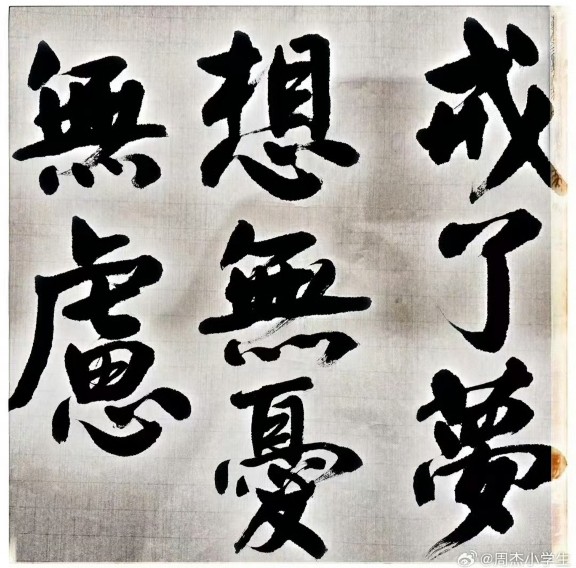 戒了夢
想無憂
無慮
@周杰小学生